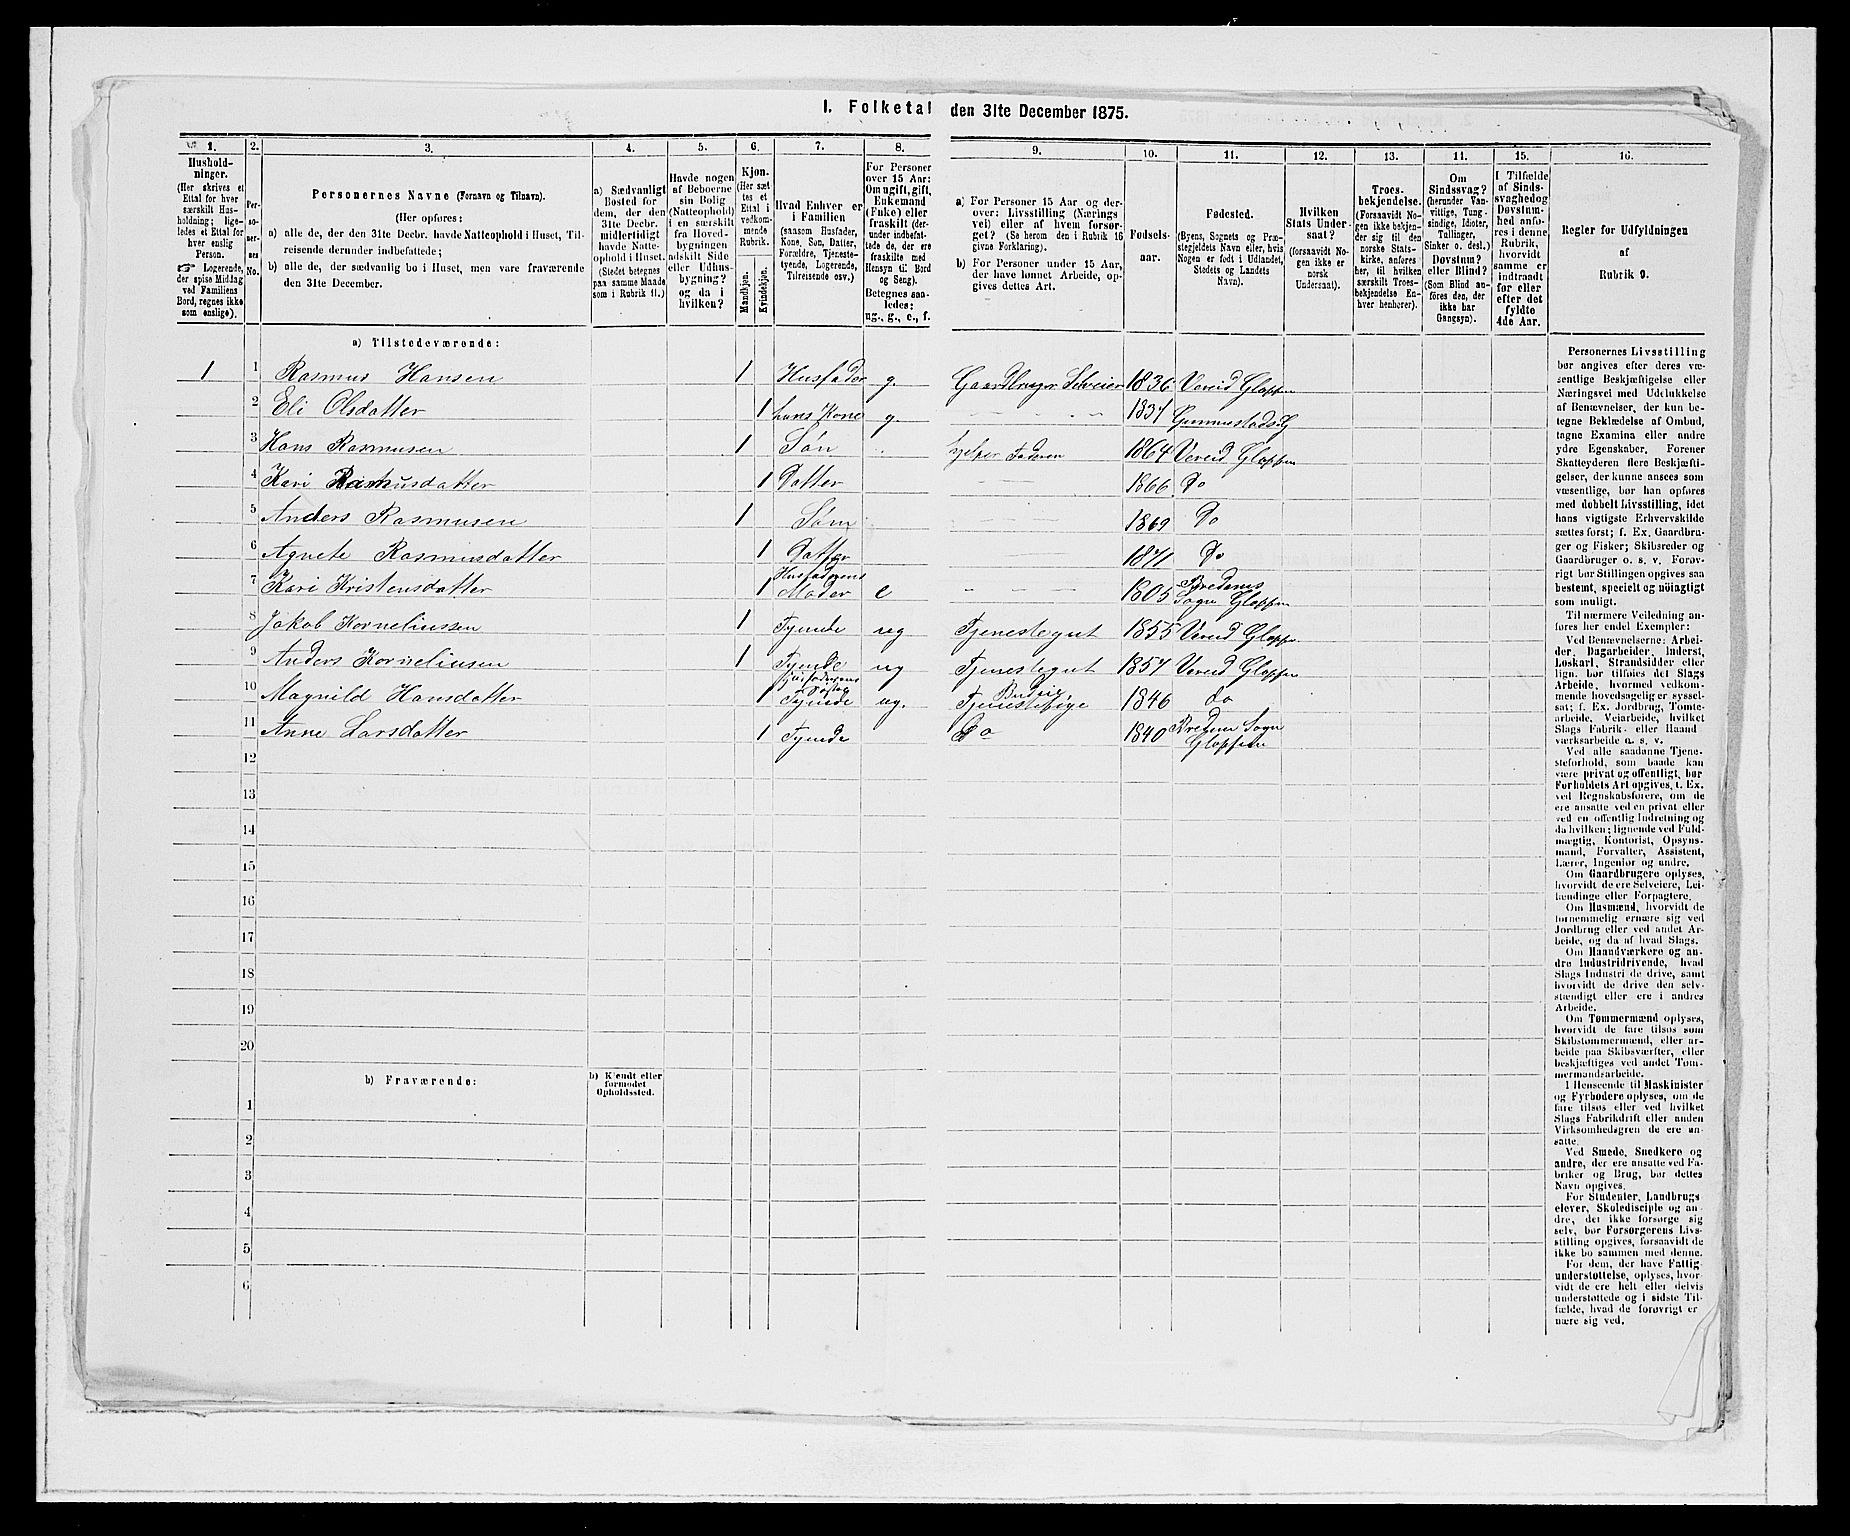 I. Folketal den 31te December 1875.
1. 2. 3. 4. 5. 6. 7. 8. 9. 10. 11. 12. 13. 11. 15. 16.
Hushold-
ninger.
(Her skrives et
Ettal for hver
særskilt Hus-
holdning; lige-
ledes et Ettal for
hver enslig
Person.
☞ Logerende,
der spise Middag
ved Familiens
Bord, regnes ikke
som enslige).
Per-
so-
ner-
nes
No.
Personernes Navne (Fornavn og Tilnavn).
(Her opføres:
a) alle de, der den 31te Decbr. havde Natteophold i Huset, Til-
reisende derunder indbefattede;
b) alle de, der sædvanlig bo i Huset, men vare fraværende
den 31te December.
a) Sædvanligt
Bosted for
dem, der den
31te Decbr.
midlertidigt
havde Natte-
ophold i Huset.
(Stedet betegnes
paa samme Maade
som i Rubrik 11.)
Havde nogen
af Beboerne
sin Bolig
(Natteophold)
i en særskilt
fra Hoved-
bygningen
adskilt Side
eller Udhus-
bygning?
og da i
hvilken?
Kjøn.
(Her sæt
tes et
Ettal i
vedkom-
mende
Rubrik.
Mandkjøn.
Kvindekjøn.
Hvad Enhver er
i Familien
(saasom Husfader,
Kone, Søn, Datter,
Forældre, Tjeneste-
tyende, Logerende,
Tilreisende osv.)
For Personer
over 15 Aar:
Om ugift, gift,
Enkemand
(Enke) eller
fraskilt (der-
under indbefat-
tede de, der ere
fraskilte med
Hensyn til Bord
og Seng).
Betegnes saa-
ledes:
ug., g., e., f.
a) For Personer 15 Aar og der-
over: Livsstilling (Nærings
vei) eller af hvem forsør-
get? (Se herom den i Rubrik 16
givne Forklaring).
b) For Personer under 15 Aar,
der have lønnet Arbeide, op-
gives dettes Art.
Fødsels-
aar.
Fødested.
(Byens, Sognets og Præ-
stegjeldets Navn eller, hvis
Nogen er født i Udlandet,
Stedets og Landets
Navn).
Hvilken
Stats Under-
saat?
(forsaavidt No-
gen ikke er
norsk
Undersaat).
Troes-
bekjendelse.
(Forsaavidt No-
gen ikke bekjen-
der sig til den
norske Stats-
kirke, anføres
her, til hvilken
særskilt Troes-
bekjendelse En-
hver henhører).
Om
Sindssvag?
(herunder Van-
vittige, Tung-
sindige, Idioter,
Tullinger,
Sinker o. desl.)
Døvstum?
eller Blind?
(Som Blind an-
føres den, der
ikke har
Gangsyn).
I Tilfælde
af Sinds-
svaghed og
Døvstum-
hed anfø-
res i denne
Rubrik,
hvorvidt
samme er
indtraadt
før eller
efter det
fyldte
4de Aar.
Regler for Udfyldningen
af
Rubrik 9.
a) Tilstedeværende:
1 1 Rasmus Hansen 1 Husfader g. Gaardbruger Selveier 1836 Vereid Gloppen
2 Eli Olsdatter 1 hans Kone g. 1834
3 Hans Rasmusen 1 Søn hjelper Faderen 1864 Vereid Gloppen
4 Kari Rasmusdatter 1 Datter 1866 Do
5 Anders Rasmusen 1 Søn 1869 Do
6 Agnete Rasmusdatter 1 Datter 1871 Do
7 Kari Kristensdatter 1 Husfaderens Moder e 1805 Bredems Sogn Gloppen
8 Jakob Korneliussen 1 Tyende ug Tjenestegut 1855 Vereid Gloppen
9 Anders Korneliusen 1 Tyende ug Tjenestegut 1857 Vereid Gloppen
10 Magnild Hansdatter 1 Husfaderens Tyende ug. Budeie, Tjenestepige 1846 do
11 Anne Larsdatter 1 Tyende Do 1840 Bredem Sogn Gloppen
12
13
14
15
16
17
18
19
20
b) Fraværende:
b) Kjendt eller
formodet
Opholdssted.
1
2
3
4
5
6
Personernes Livsstilling
bør angives efter deres væ-
sentlige Beskjæftigelse eller
Næringsvei med Udelukkelse
af Benævnelser, der kun be-
tegne Beklædelse af Ombud,
tagne Examina eller andre
ydre Egenskaber. Forener
Skatteyderen flere Beskjæfti-
gelser, der kunne ansees som
væsentlige, bør han opføres
med dobbelt Livsstilling, idet
hans vigtigste Erhvervskilde
sættes først; f. Ex. Gaardbru-
ger og Fisker; Skibsreder og
Gaardbruger o. s. v. Forøv-
rigt bør Stillingen opgives saa
bestemt, specielt og nöiagtigt
som muligt.
Til nærmere Veiledning an-
føres her endel Exempler:
Ved Benævnelserne: Arbei-
der, Dagarbeider, Inderst,
Løskarl, Strandsidder eller
lign. bør tilføies det Slags
Arbeide, hvormed vedkom-
mende hovedsagelig er syssel-
sat; f. Ex. Jordbrug, Tomte-
arbeide, Veiarbeide, hvilket
Slags Fabrik- eller Haand
værksarbeide o. s. v.
Ved alle saadanne Tjene-
steforhold, som baade kan
være privat og offentligt, bør
Forholdets Art opgives, t. Ex.
ved Regnskabsførere, om de
ere ansatte ved en privat eller
ved en offentlig Indretning og
da hvilken; lignende ved Fuld-
mægtig, Kontorist, Opsyns-
mand, Forvalter, Assistent,
Lærer, Ingeniør og andre.
Om Gaardbrugere oplyses,
hvorvidt de ere Selveiere, Lei-
lændinge eller Forpagtere.
Om Husmænd, hvorvidt de
fornemmelig ernære sig ved
Jordbrug eller ved andet Ar-
beide, og da af hvad Slags.
Om Haandværkere og an-
dre Industridrivende, hvad
Slags Industri de drive, samt
hvorvidt de drive den selv-
stændigt eller ere i andres
Arbeide.
Om Tømmermænd oplyses,
hvorvidt de fare tilsøs som
Skibstømmermænd, eller ar-
beide paa Skibsværfter, eller
beskjæftiges ved andet Tøm-
mermandsarbeide.
I Henseende til Maskinister
og Fyrbødere oplyses, om de
fare tilsøs eller ved hvilket
Slags Fabrikdrift eller anden
Virksomhedsgren de ere an-
satte.
Ved Smede, Snedkere og
andre, der ere ansatte ved Fa-
briker og Brug, bør dettes
Navn opgives.
For Studenter, Landbrugs
elever, Skoledisciple og an-
dre, der ikke forsørge sig
selv, bør Forsørgerens Livs-
stilling opgives, forsaavidt de
ikke bo sammen med denne.
For dem, der have Fattig-
understøttelse, oplyses, hvor-
vidt de ere helt eller delvis
understøttede og i sidste Til-
fælde, hvad de forøvrigt er
nære sig ved.